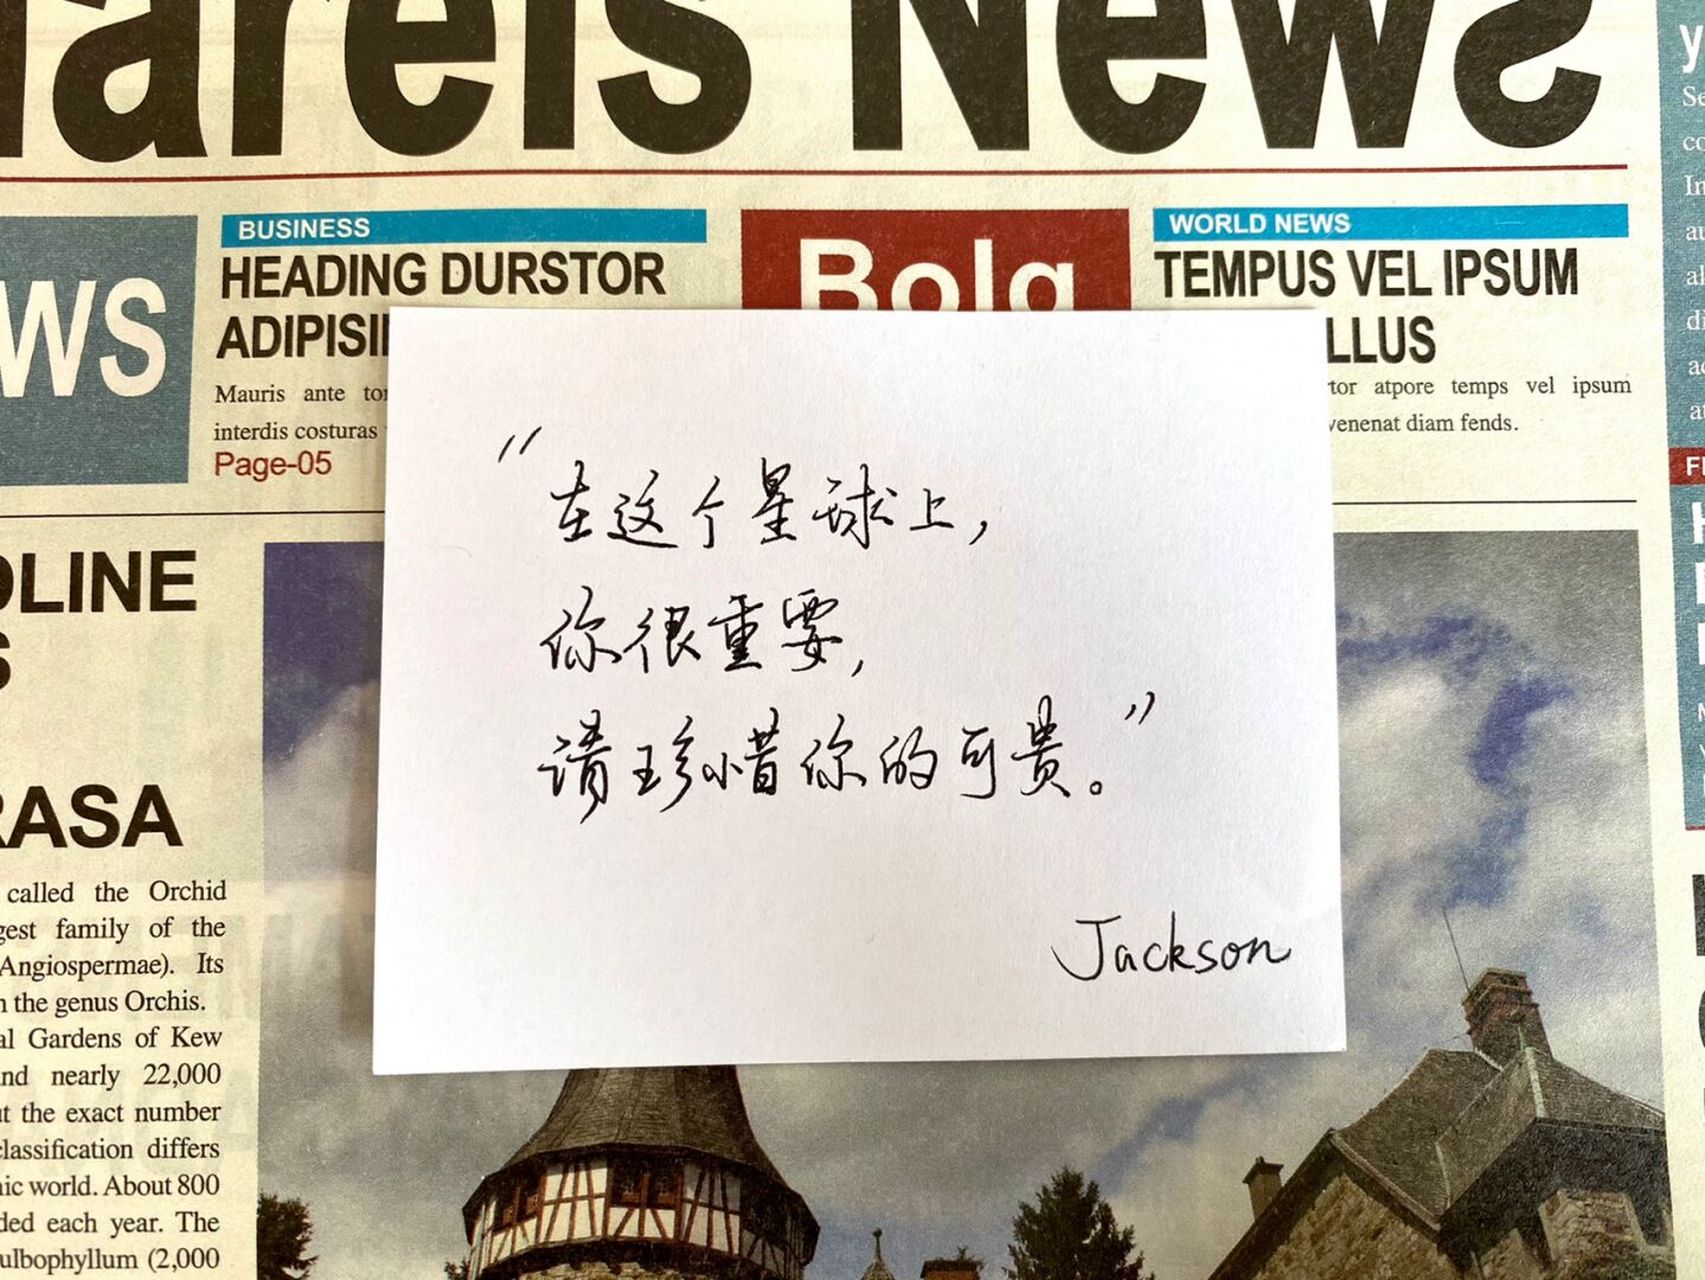 arels News
BUSINESS
HEADING DURSTOR
ADIPISI
Mauris ante
interdis costuras
Page-05
WS
Bolg
WORLD NEWS
TEMPUS VEL IPSUM
LLUS
tor atpore temps vel ipsum
venenat diam fends.
“在这个星球上,
你很重要,
请珍惜你的可贵。”
Jackson
DLINE
S
RASA
called the Orchid
gest family of the
Angiospermae). Its
n the genus Orchis.
al Gardens of Kew
nd nearly 22,000
ut the exact number
classification differs
nic world. About 800
ded each year. The
ulbophyllum (2,000